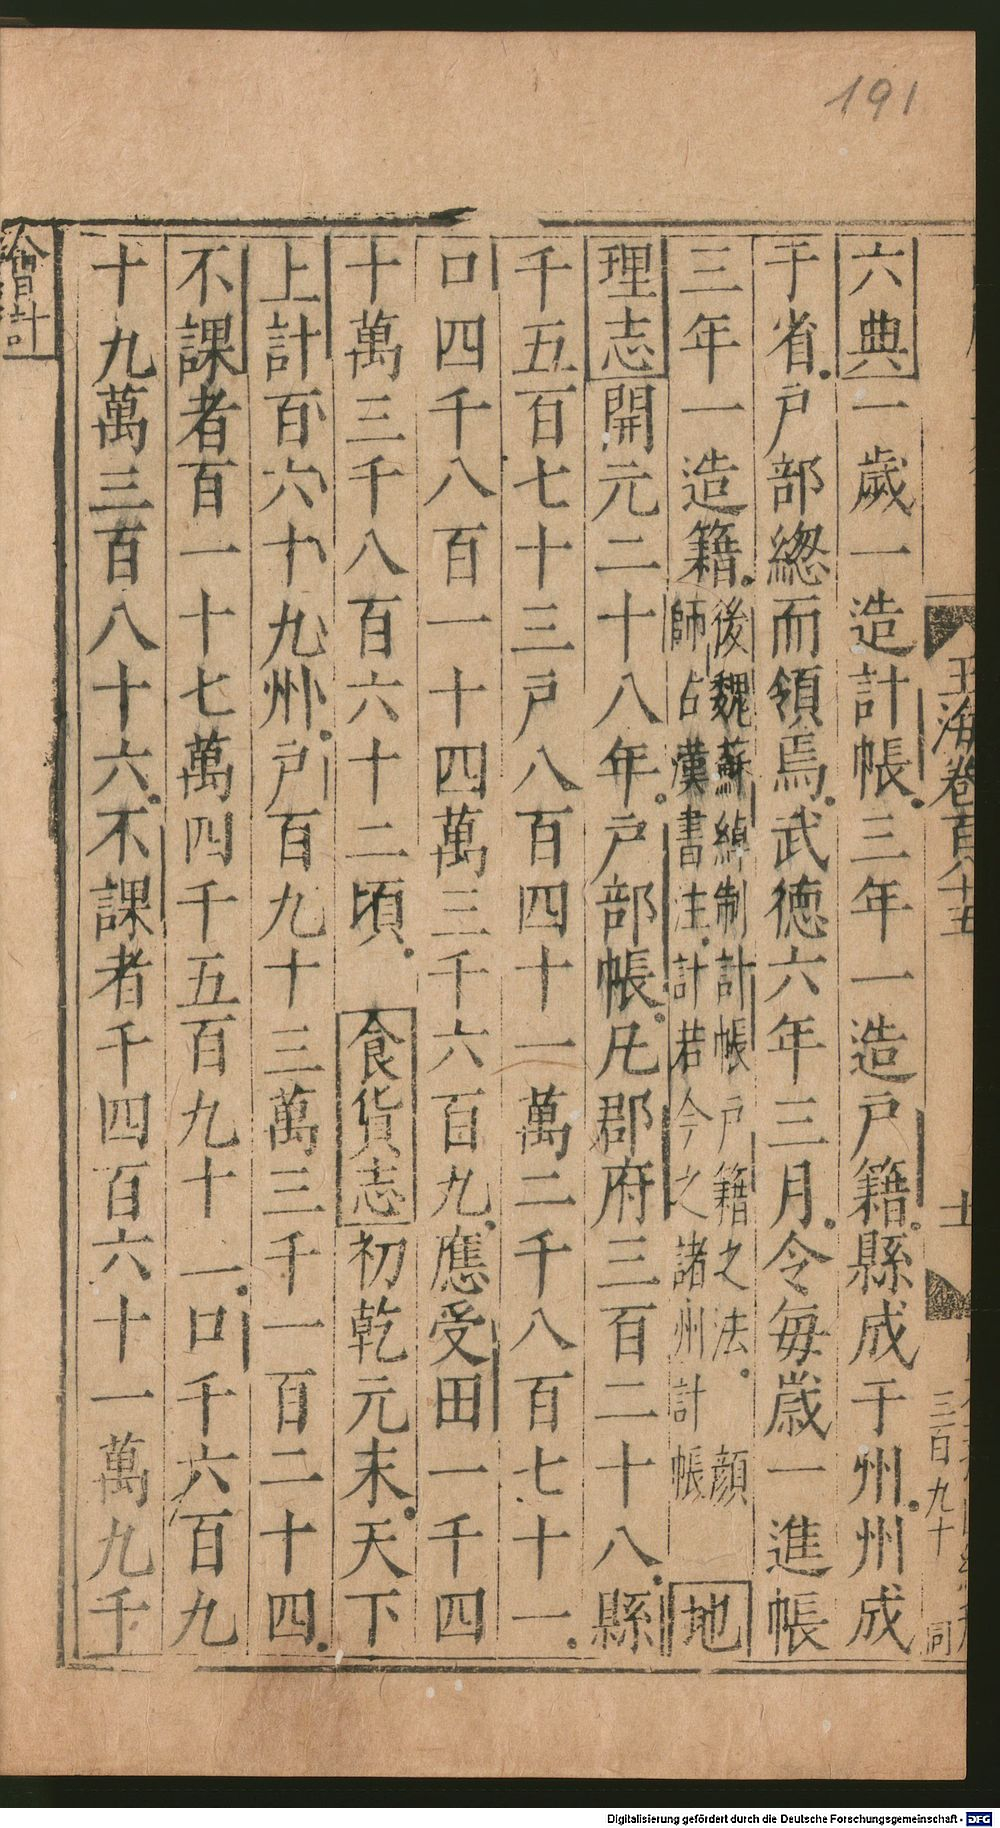 191
玉海卷百八十五
十一
三百九十
同
六典一歲一造計帳三年一造戶籍縣成于州州成
于省戶部緫而領焉武德六年三月令每歲一進帳
三年一造籍後魏蘇綽制計帳戶籍之法顏師占漢書注計若今之諸州計帳地
理志開元二十八年戶部帳凡郡府三百二十八縣
千五百七十三戶八百四十一萬二千八百七十一
口四千八百一十四萬三千六百九應受田一千四
十萬三千八百六十二頃食貨志初乾元末天下
上計百六十九州戶百九十三萬三千一百二十四
不課者百一十七萬四千五百九十一口千六百九
十九萬三百八十六不課者千四百六十一萬九千
會計
Digitalisierung gefördert durch die Deutsche Forschungsgemeinschaft - DFG